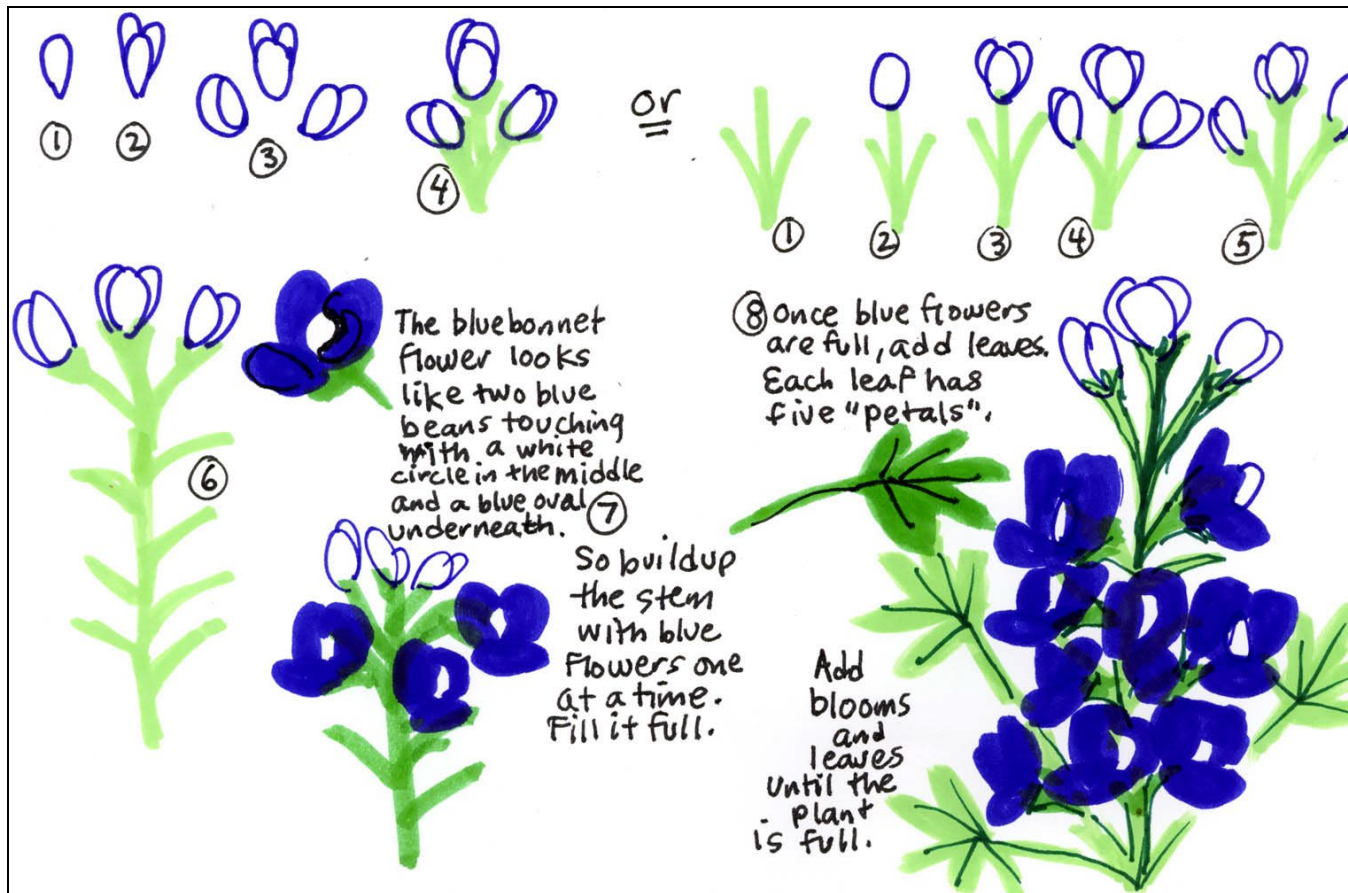 ①
②
③
④
or
①
②
③
④
⑤
⑥
The bluebonnet
flower looks
like two blue
beans touching
with a white
circle in the middle
and a blue oval
underneath.
⑦
So buildup
the stem
with blue
flowers one
at a time.
Fill it full.
⑧ Once blue flowers
are full, add leaves.
Each leaf has
five "petals".
Add
blooms
and
leaves
until the
plant
is full.